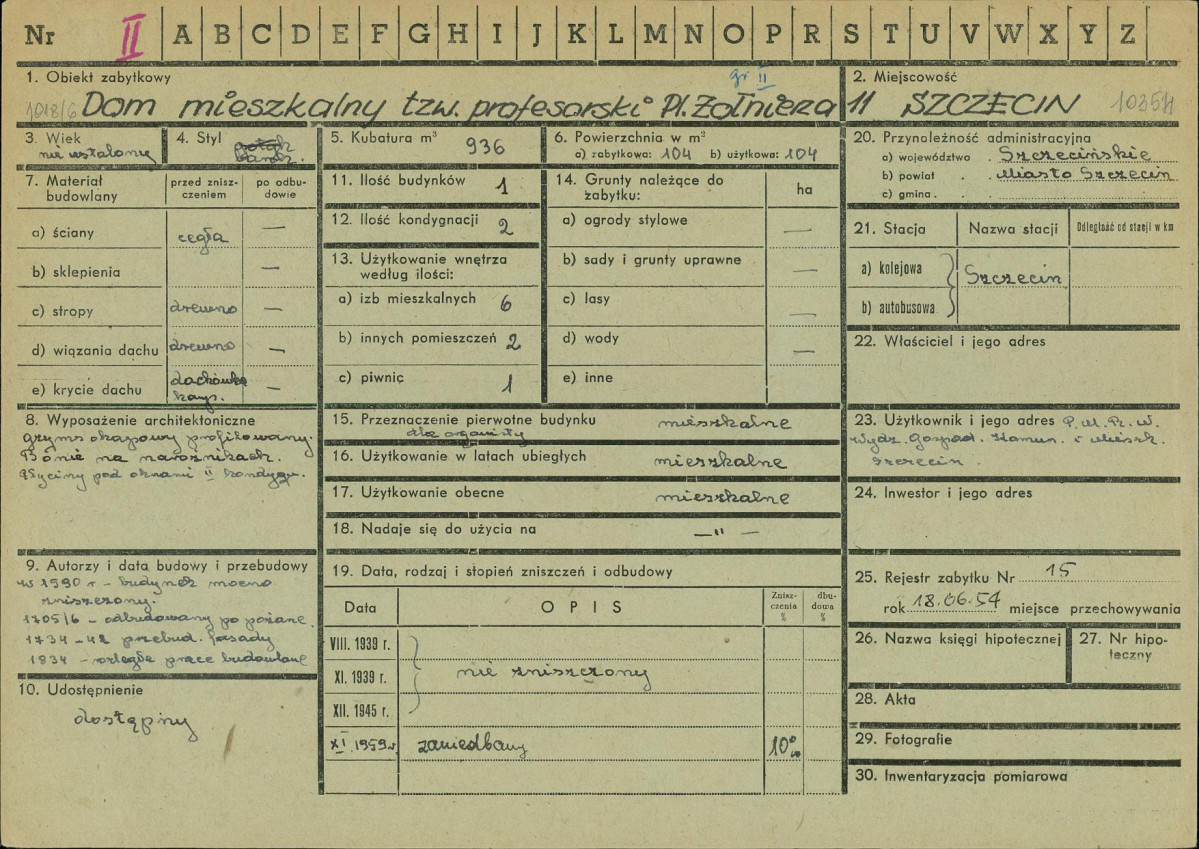 Nr II A B C D E F G H I J K L M N O P R S T U V W X Y Z
1. Obiekt zabytkowy
gr II
1018/6 Dom mieszkalny tzw. profesorski Pl. Żołnierza 11
2. Miejscowość
SZCZECIN
3. Wiek
nie ustalony
4. Styl
barok.
5. Kubatura m³
936
6. Powierzchnia w m²
a) zabytkowa: 104 b) użytkowa: 104
7. Materiał budowlany
przed zniszczeniem
po odbudowie
a) ściany cegła —
b) sklepienia —
c) stropy drewno —
d) wiązania dachu drewno —
e) krycie dachu dachówka —
8. Wyposażenie architektoniczne
gzyms okapowy profilowany.
Bonie na narożnikach.
Płyciny pod oknami II kondygn.
9. Autorzy i data budowy i przebudowy
w 1590 r - budynek mocno
zniszczony.
1705/6 - odbudowany po pożarze
1734 - 42 przebud. fasady
1834 - rozległe prace budowlane
10. Udostępnienie
dostępny
11. Ilość budynków 1
12. Ilość kondygnacji 2
13. Użytkowanie wnętrza
według ilości:
a) izb mieszkalnych 6
b) innych pomieszczeń 2
c) piwnic 1
14. Grunty należące do
zabytku:
ha
a) ogrody stylowe —
b) sady i grunty uprawne —
c) lasy —
d) wody —
e) inne
15. Przeznaczenie pierwotne budynku mieszkalne
dla organisty
16. Użytkowanie w latach ubiegłych mieszkalne
17. Użytkowanie obecne mieszkalne
18. Nadaje się do użycia na —"—
19. Data, rodzaj i stopień zniszczeń i odbudowy
Data
OPIS
Zniszczenia %
dbudowa %
VIII. 1939 r.
XI. 1939 r. nie zniszczony
XII. 1945 r.
XI. 1959 r. zaniedbany 10%
20. Przynależność administracyjna
a) województwo . Szczecińskie
b) powiat . . Miasto Szczecin
c) gmina . .
21. Stacja
Nazwa stacji
Odległość od stacji w km
a) kolejowa
Szczecin
b) autobusowa
22. Właściciel i jego adres
23. Użytkownik i jego adres P. M. R. W.
Wydz. Gospod. Komun. i Mieszk.
Szczecin
24. Inwestor i jego adres
25. Rejestr zabytku Nr 15
rok 18.06.54 miejsce przechowywania
26. Nazwa księgi hipotecznej
27. Nr hipoteczny
28. Akta
29. Fotografie
30. Inwentaryzacja pomiarowa